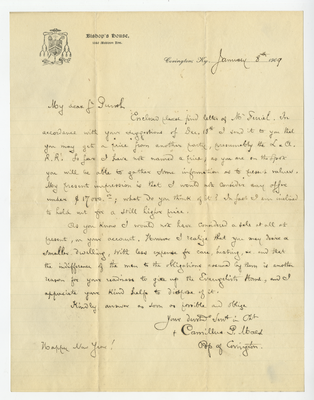 Bishop's House,
Covington, Ky. January 8th 1909
My dear Fr Gersh
Enclosed please find letter of Mr. Social. In
accordance with your suggestions of Dec. 18th I send it to you that
you may get a price from another party, presumably the L & N.
R.R. So far I have not named a price; as you are on the spot
you will be able to gather some information as to proper values.
My present impression is that I would not consider any offer
under $17,000.00; what do you think of it? In fact I am inclined
to hold out for a still higher price.
As you know I would not have considered a sale at all at
present, on your account. However I realize that you may desire a
smaller dwelling, with less expense for care, heating, etc. and that
the indifference of the men to the obligations assumed by them is another
reason for your readiness to give up the Evangelist's Home, and I
appreciate your kind help to dispose of it.
Kindly answer as soon as possible and oblige
Your devoted Servt in Xt
+ Camillus P. Maes
Bp of Covington.
Happy New Year!